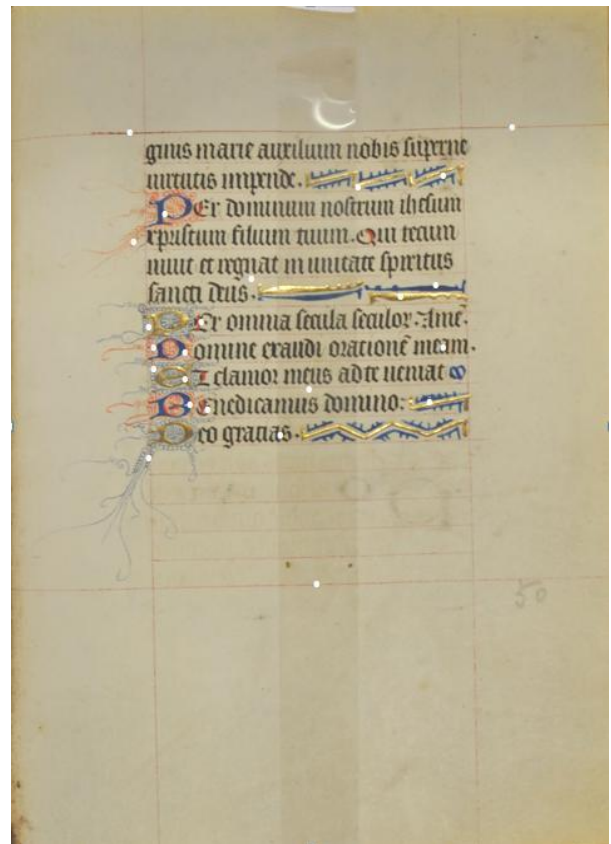 ginis marie auxilium nobis superne
uirtutis impende.
Per dominum nostrum ihesum
xpristum filium tuum. Qui tecum
uiuit et regnat in unitate spiritus
sancti deus.
Per omnia secula seculor. Amē.
Domine exaudi orationē meam.
Et clamor meus ad te ueniat
Benedicamus domino.
Deo gracias.
50